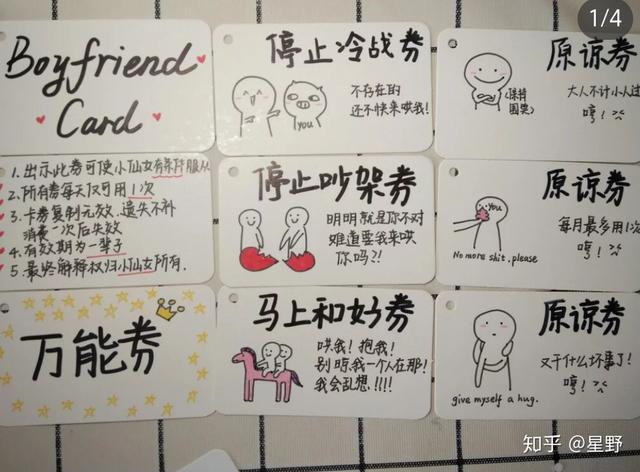 1/4
Boyfriend
Card
停止冷战券
不存在的
还不快来哄我!
you
原谅券
(保持
围笑)
大人不计小人过
哼!
1. 出示此券可使小仙女有条件服从
2. 所有券每天仅可用1次
3. 卡券复制无效、遗失不补
消费一次后失效
4. 有效期为一辈子
5. 最终解释权归小仙女所有.
停止吵架券
明明就是你不对
难道要我来哄
你吗?!
原谅券
you
每月最多用1次
哼!
No more shit, please
万能券
马上和好券
哄我! 抱我!
别晾我一个人在那!
我会乱想!!!!
原谅券
又干什么坏事了!
哼!
give myself a hug.
知乎 @星野